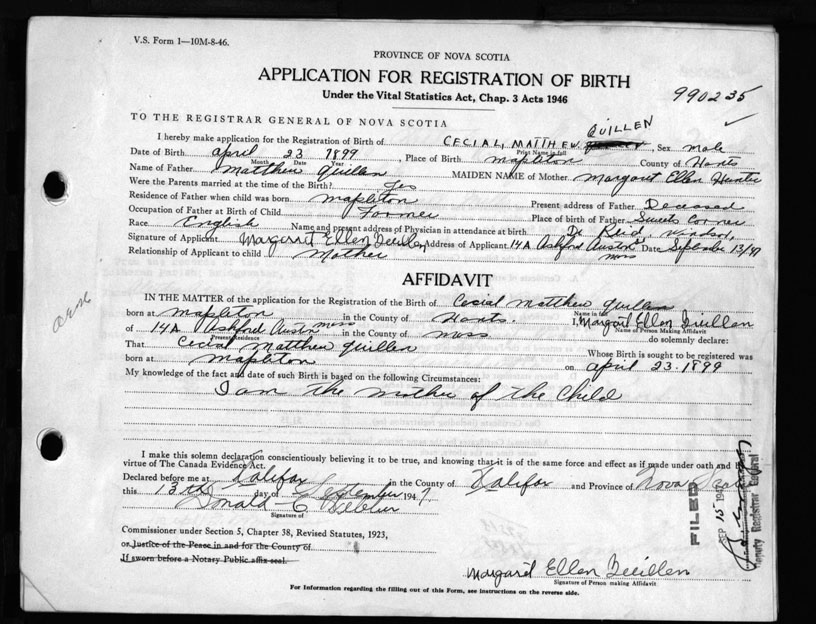 V.S. Form 1—10M-8-46.
PROVINCE OF NOVA SCOTIA
APPLICATION FOR REGISTRATION OF BIRTH
Under the Vital Statistics Act, Chap. 3 Acts 1946
990235
TO THE REGISTRAR GENERAL OF NOVA SCOTIA
QUILLEN
I hereby make application for the Registration of Birth of CECIAL, MATTHEW, Sex male
Print Name in full
Date of Birth april 23 1899, Place of Birth mapleton County of Hants
Month Date Year
Name of Father Matthew Quillen MAIDEN NAME of Mother Margaret Ellen Hunter
Were the Parents married at the time of the Birth? Yes
Residence of Father when child was born mapleton Present address of Father Deceased
Occupation of Father at Birth of Child Farmer Place of birth of Father Sweets Corner
Race English Name and present address of Physician in attendance at birth Dr Reid, Windsor,
Signature of Applicant Margaret Ellen Quillen Address of Applicant 14A Ashford Auston Date September 13/47
mass
Relationship of Applicant to child Mother
AFFIDAVIT
arm
IN THE MATTER of the application for the Registration of the Birth of Cecial Matthew Quillen
Name in full
born at mapleton in the County of Hants. I, Margaret Ellen Quillen
Name of Person Making Affidavit
of 14A Ashford Auston mass in the County of mass do solemnly declare:
Present Residence
That Cecial Matthew Quillen Whose Birth is sought to be registered was
born at mapleton on april 23. 1899
My knowledge of the fact and date of such Birth is based on the following Circumstances:
I am the mother of the Child
I make this solemn declaration conscientiously believing it to be true, and knowing that it is of the same force and effect as if made under oath and
virtue of The Canada Evidence Act.
Declared before me at Halifax in the County of Halifax and Province of Nova Scotia
this 13th day of September 1947
Donald C
Signature of
Commissioner under Section 5, Chapter 38, Revised Statutes, 1923,
or Justice of the Peace in and for the County of
If sworn before a Notary Public affix seal.
FILED
SEP 15 1947
Deputy Registrar General
Margaret Ellen Quillen
Signature of Person making Affidavit
For Information regarding the filling out of this Form, see instructions on the reverse side.